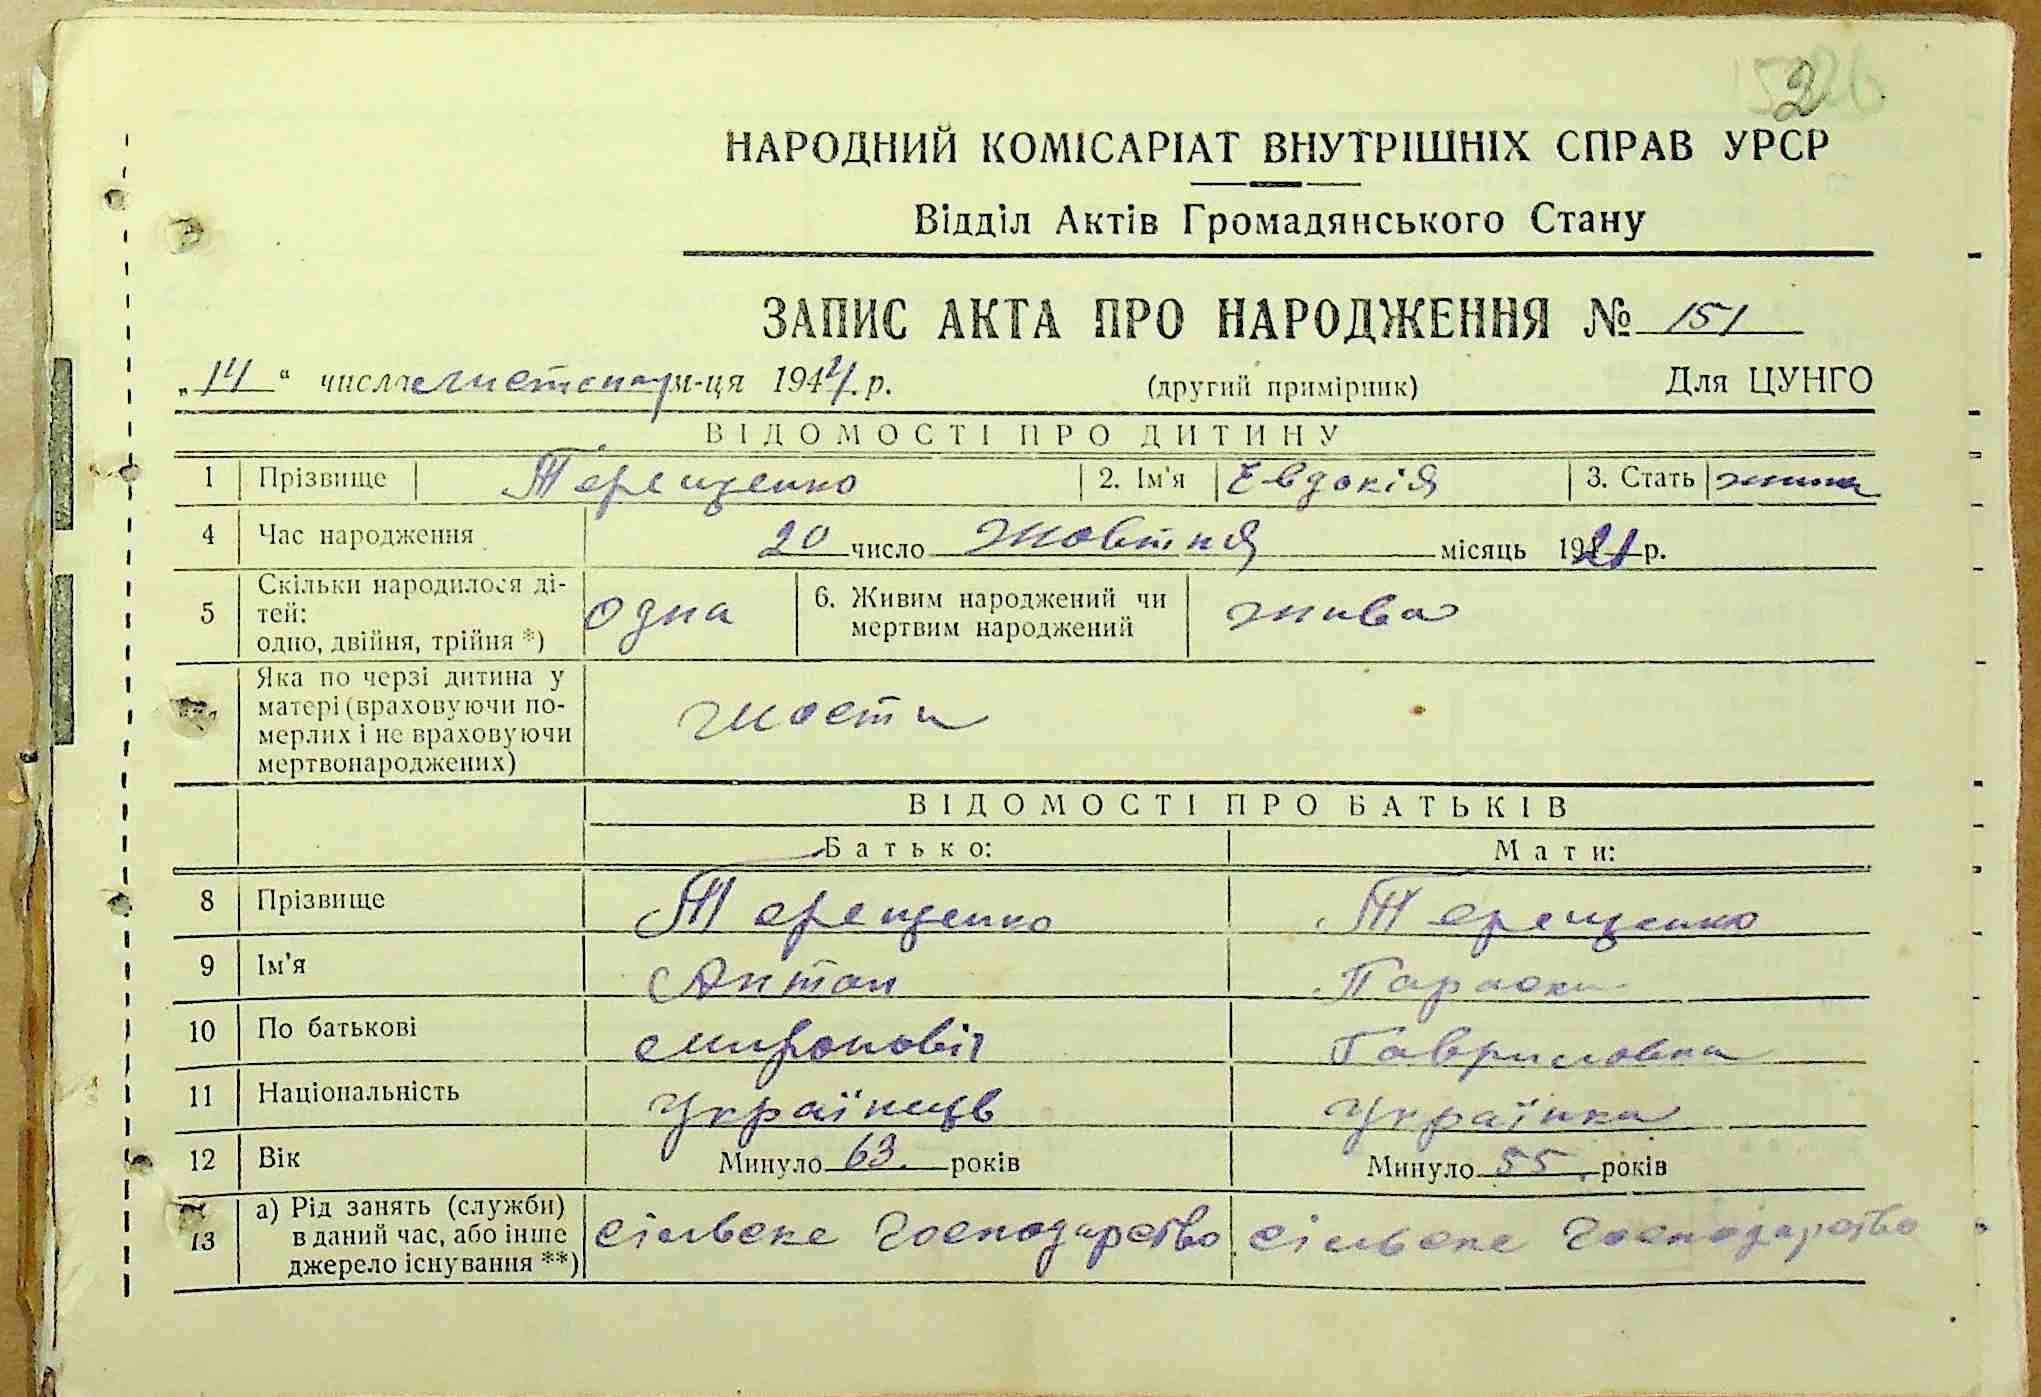 2
НАРОДНИЙ КОМІСАРІАТ ВНУТРІШНІХ СПРАВ УРСР
Відділ Актів Громадянського Стану
ЗАПИС АКТА ПРО НАРОДЖЕННЯ № 151
„14“ числа листопад м-ця 1944 р. (другий примірник) Для ЦУНГО
ВІДОМОСТІ ПРО ДИТИНУ
1 Прізвище Терещенко 2. Ім'я Евдокія 3. Стать жіноч
4 Час народження 20 число Жовтня місяць 1921 р.
5 Скільки народилося ді-
тей:
одно, двійня, трійня *) одна 6. Живим народжений чи
мертвим народжений жива
Яка по черзі дитина у
матері (враховуючи по-
мерлих і не враховуючи
мертвонароджених) шоста
ВІДОМОСТІ ПРО БАТЬКІВ
Батько: Мати:
8 Прізвище Терещенко Терещенко
9 Ім'я Антон Параска
10 По батькові Миронович Гавриловна
11 Національність Українець Українка
12 Вік Минуло 63 років Минуло 55 років
13 а) Рід занять (служби)
в даний час, або інше
джерело існування **) сільске господарство сільске господарство